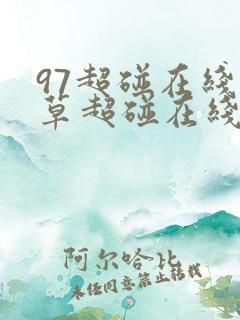 97超碰在綫
草超碰在綫
阿尔哈比
未经同意禁止转载